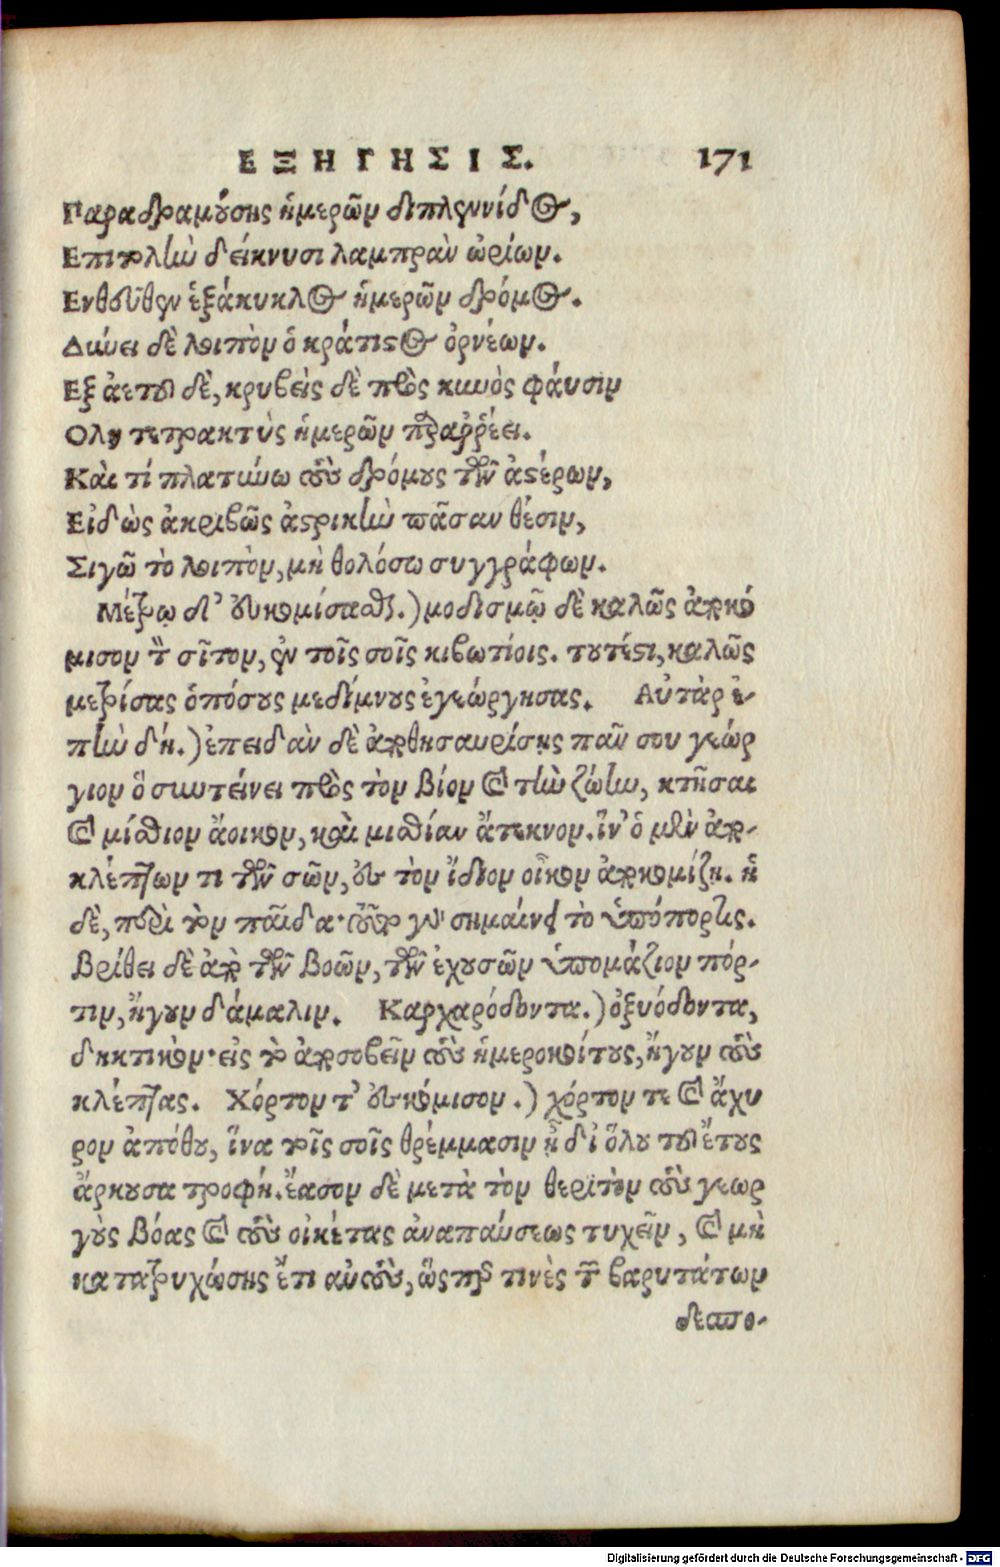 ΕΞΗΓΗΣΙΣ. 171
Παραδραμούσης ἡμερῶν διπλεννίδος,
Επιτολὴν δείκνυσι λαμπρὰν ὠρίων.
Ενθοῦθεν ἑξάκυκλος ἡμερῶν δρόμος.
Δύνει δὲ λοιπὸν ὁ κράτιστος ὀρνέων.
Εξ ἀετοῦ δὲ, κρυβεὶς δὲ πρὸς κυνὸς φάυσιν
Ολη τετρακτὺς ἡμερῶν παραῤῥέει.
Καὶ τί πλατύνω τοὺς δρόμους τῶν ἀστέρων,
Εἰδὼς ἀκριβῶς ἀστρικὴν πᾶσαν θέσιν,
Σιγῶ τὸ λοιπὸν, μὴ θολόσω συγγράφων.
Μέτρῳ δ' ἐυκομίσασθαι.) μοδισμῷ δὲ καλῶς ἀποκό
μισον τὸν σῖτον, ἐν τοῖς σοῖς κιβωτίοις. τουτέστι, καλῶς
μετρίσας ὁπόσους μεδίμνους ἐγεώργησας. Αὐτὰρ ἐ-
πὴν δή.) ἐπειδὰν δὲ ἀποθησαυρίσῃς πᾶν σου γεώρ
γιον ὃ συντείνει πρὸς τὸν βίον καὶ τὴν ζώην, κτῆσαι
καὶ μίσθιον ἄοικον, καὶ μισθίαν ἄτεκνον. ἵν' ὁ μὲν ἀπο-
κλέπτων τι τῶν σῶν, εἰς τὸν ἴδιον οἶκον ἀποκομίζῃ. ἡ
δὲ, περὶ τὸν παῖδα· τοῦτο γὰρ σημαίνει τὸ ὑπόπορτις.
Βρίθει δὲ ἀπὸ τῶν βοῶν, τῶν ἐχουσῶν ὑπομάζιον πόρ-
τιν, ἤγουν δάμαλιν. Καρχαρόδοντα.) ὀξυόδοντα,
δηκτικὸν· εἰς τὸ ἀποσοβεῖν τοὺς ἡμεροκοίτους, ἤγουν τοὺς
κλέπτας. Χόρτον τ' ἐισκόμισον.) χόρτον τε καὶ ἄχυ
ρον ἀπόθου, ἵνα τοῖς σοῖς θρέμμασιν ᾖ δι' ὅλου τοῦ ἔτους
ἄρκουσα τροφή. ἔασον δὲ μετὰ τὸν θεριτὸν τοὺς γεωρ
γοὺς βόας καὶ τοὺς οἰκέτας ἀναπαύσεως τυχεῖν, καὶ μὴ
κατατρυχώσῃς ἔτι αὐτοὺς, ὥσπερ τινὲς τῶν βαρυτάτων
δεσπο-
Digitalisierung gefördert durch die Deutsche Forschungsgemeinschaft - DFG